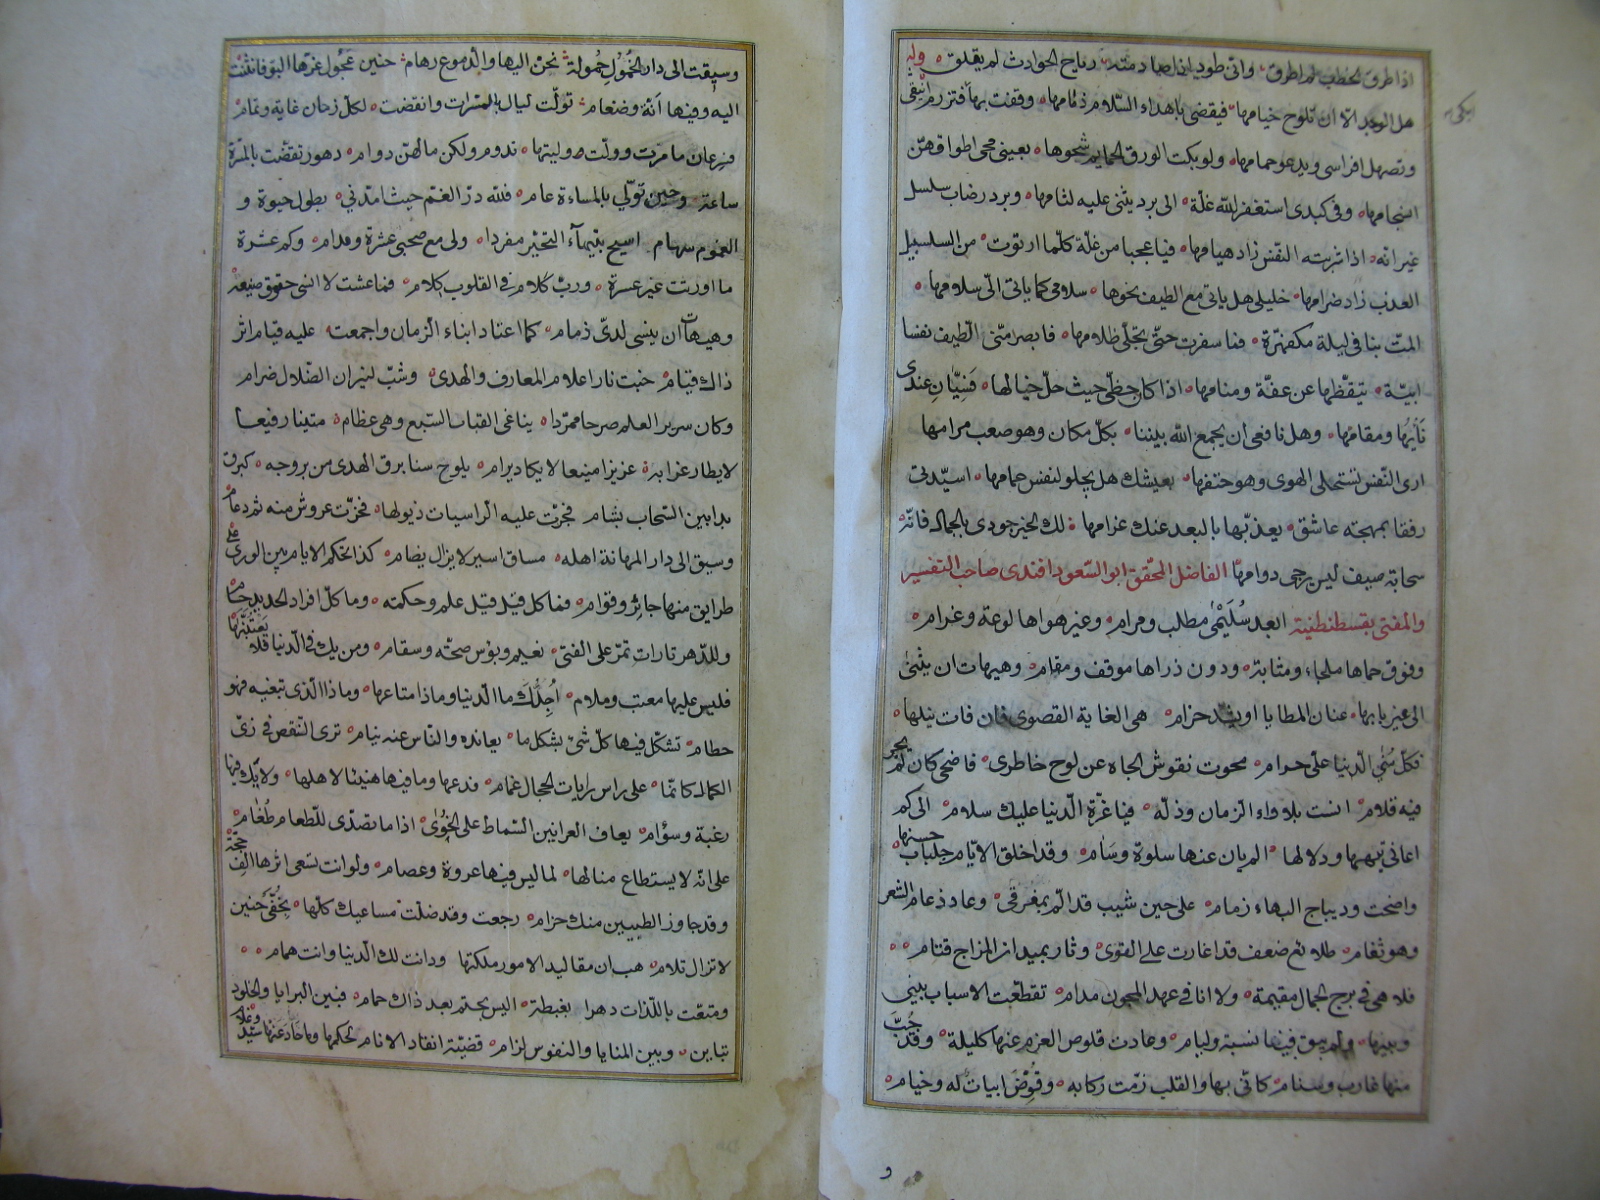 اذا طرق الخطب لم اطرق وانى طود اذا صادمته رياح الحوادث لم يقلق وله
هل الوجد الا ان تلوح خيامها فيقضى باهداء السلام ذمامها وقفت بها فترزم اينقى
وتصهل افراسى ويدعو حمامها ولو بكت الورق الحمايم شجوها بعينى محى اطواقهن
انسجامها وفى كبدى استغفر الله غلة الى برد يثنى عليه لثامها وبرد رضاب سلسل
غير انه اذا شربته النفس زاد هيامها فيا عجبا من غلة كلما ارتوت من السلسبيل
العذب زاد ضرامها خليلى هل ياتى مع الطيف نحوها سلامى كما ياتى الى سلامها
المت بنا فى ليلة مكفهرة فما سفرت حتى تجلى ظلامها فابصر منى الطيف نفسا
ابية تيقظها عن عفة ومنامها اذا كان حظى حيث حل خيالها فسيان عندى
نايها ومقامها وهل نافعى ان يجمع الله بيننا بكل مكان وهو صعب مرامها
ارى النفس تستحلى الهوى وهو حتفها بعيشك هل يحلو لنفس حمامها اسيدتى
رفقا بمهجة عاشق يعذبها بالبعد عنك غرامها لك الخير جودى بالجمال فانه
سحابة صيف ليس يرجى دوامها الفاضل المحقق ابو السعود افندى صاحب التفسير
والمفتى بقسطنطنية ابعد سليمى مطلب ومرام وغير هواها لوعة وغرام
وفوق حماها ملجاء ومثابة ودون ذراها موقف ومقام وهيهات ان يثنى
الى غير بابها عنان المطايا او يشد حزام هى الغاية القصوى فان فات نيلها
فكل منى الدنيا على حرام محوت نقوش الجاه عن لوح خاطرى فاضحى كان لم يجر
فيه قلام انست بلاواء الزمان وذله فيا عزة الدنيا عليك سلام الى كم
اعانى تيهها ودلالها الم يان عنها سلوة وسام وقد اخلق الايام جلباب حسنها
واضحت وديباج البهاء زمام على حين شيب قد الم بمفرقى وعاد ذعام الشعر
وهو ثغام طلائع ضعف قد اغارت على القوى وثار بميدان المزاج قتام
فلا هى فى برج الجمال مقيمة ولا انا فى عهد المجون مدام تقطعت الاسباب بينى
وبينها ولم يبق فينا نسبة وليام وعادت قلوص العزم عنها كليلة وقد جب
منها غارب وسنام كانى بها والقلب زمت ركابه وقوض ابيات له وخيام
وسيقت الى دار الخمول حمولة تحن اليها والدموع رهام حنين عجول غرها البو فانثنت
اليه وفيها انة وضغام تولت ليال بالمسرات وانقضت لكل زمان غاية وتمام
فسرعان ما مرت وولت وليتها تدوم ولكن ما لهن دوام دهور تقضت بالمسرة
ساعة وحين تولى بالمساءة عام فلله در الغم حيث امدنى بطول حيوة و
الغموم سهام اسيح بتيهاء التحير مفردا ولى مع صحبى عشرة وندام وكم عشرة
ما اورثت غير عسرة ورب كلام فى القلوب كلام فما عشت لا انسى حقوق صنيعه
وهيهات ان ينسى لدى ذمام كما اعتاد ابناء الزمان واجمعت عليه قيام اثر
ذاك قيام خبت نار اعلام المعارف والهدى وشب لنيران الضلال ضرام
وكان سرير العلم صرحا ممردا يناغى القباب السبع وهى عظام متينا رفيعا
لا يطار غرابه عزيزا منيعا لا يكاد يرام يلوح سنا برق الهدى من بروجه كبرق
بدا بين السحاب يشام فجرت عليه الراسيات ذيولها فخرت عروش منه ثم دعام
وسيق الى دار المهانة اهله مساق اسير لا يزال يضام كذا تحكم الايام بين الورى على
طرايق منها جائر وقوام فما كل قيل قيل علم وحكمة وما كل افراد الحديد حسام
وللدهر تارات تمر على الفتى نعيم وبؤس صحة وسقام ومن يك فى الدنيا فلا يعتبنها
فليس عليها معتب وملام اجدك ما الدنيا وماذا متاعها وماذا الذى تبغيه فهو
حطام تشكل فيها كل شئ بشكل ما يعانده والناس عنه نيام ترى النقص فى زى
الكمال كانما على راس رايات الحجال غمام فدعها وما فيها هنيئا لاهلها ولا يك فيها
رغبة وسوام يعاف العرانين السماط على الخوى اذا ما تصدى للطعام طغام
على انه لا يستطاع منالها لما ليس فيها عروة وعصام ولو انت تسعى اثرها الف حجة
وقد جاوز الطبيين منك حزام رجعت وقد ضلت مساعيك كلها بخفى حنين
لا تزال تلام هب ان مقاليد الامور ملكتها ودانت لك الدنيا وانت همام
ومتعت باللذات دهرا بغبطة اليس بحتم بعد ذاك حمام فبين البرايا والخلود
تباين وبين المنايا والنفوس لزام قضية انقاد الانام لحكمها وما حاد عنها سيد وغلام